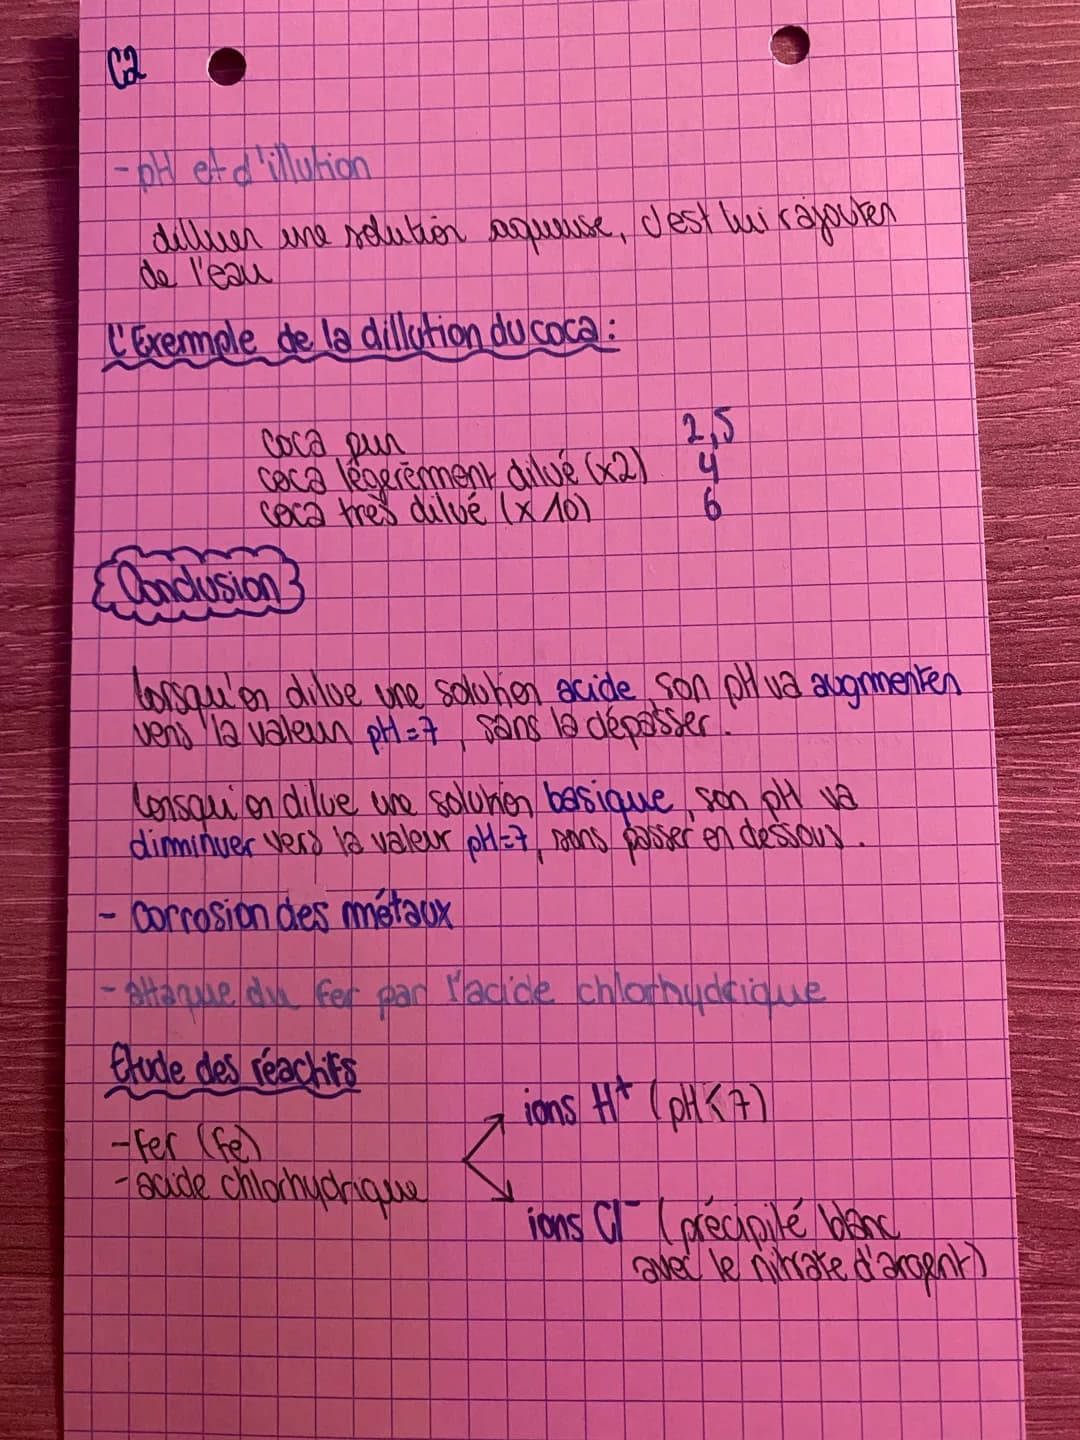 C2
- pH et d'illution
dilluer une solution aqueuse, c'est lui rajouter
de l'eau
L'Exemple de la dillution du coca :
coca pur 2,5
coca légèrement dilué (x2) 4
coca très dilué (x 10) 6
Conclusion
lorsqu'on dilue une solution acide, son pH va augmenter
vers la valeur pH=7, sans la dépasser.
lorsqu'on dilue une solution basique, son pH va
diminuer vers la valeur pH=7, sans passer en dessous.
- corrosion des métaux
- attaque du fer par l'acide chlorhydrique
Etude des réactifs
ions H+ (pH<7)
- Fer (Fe)
- acide chlorhydrique
ions Cl- (précipité blanc
avec le nitrate d'argent)